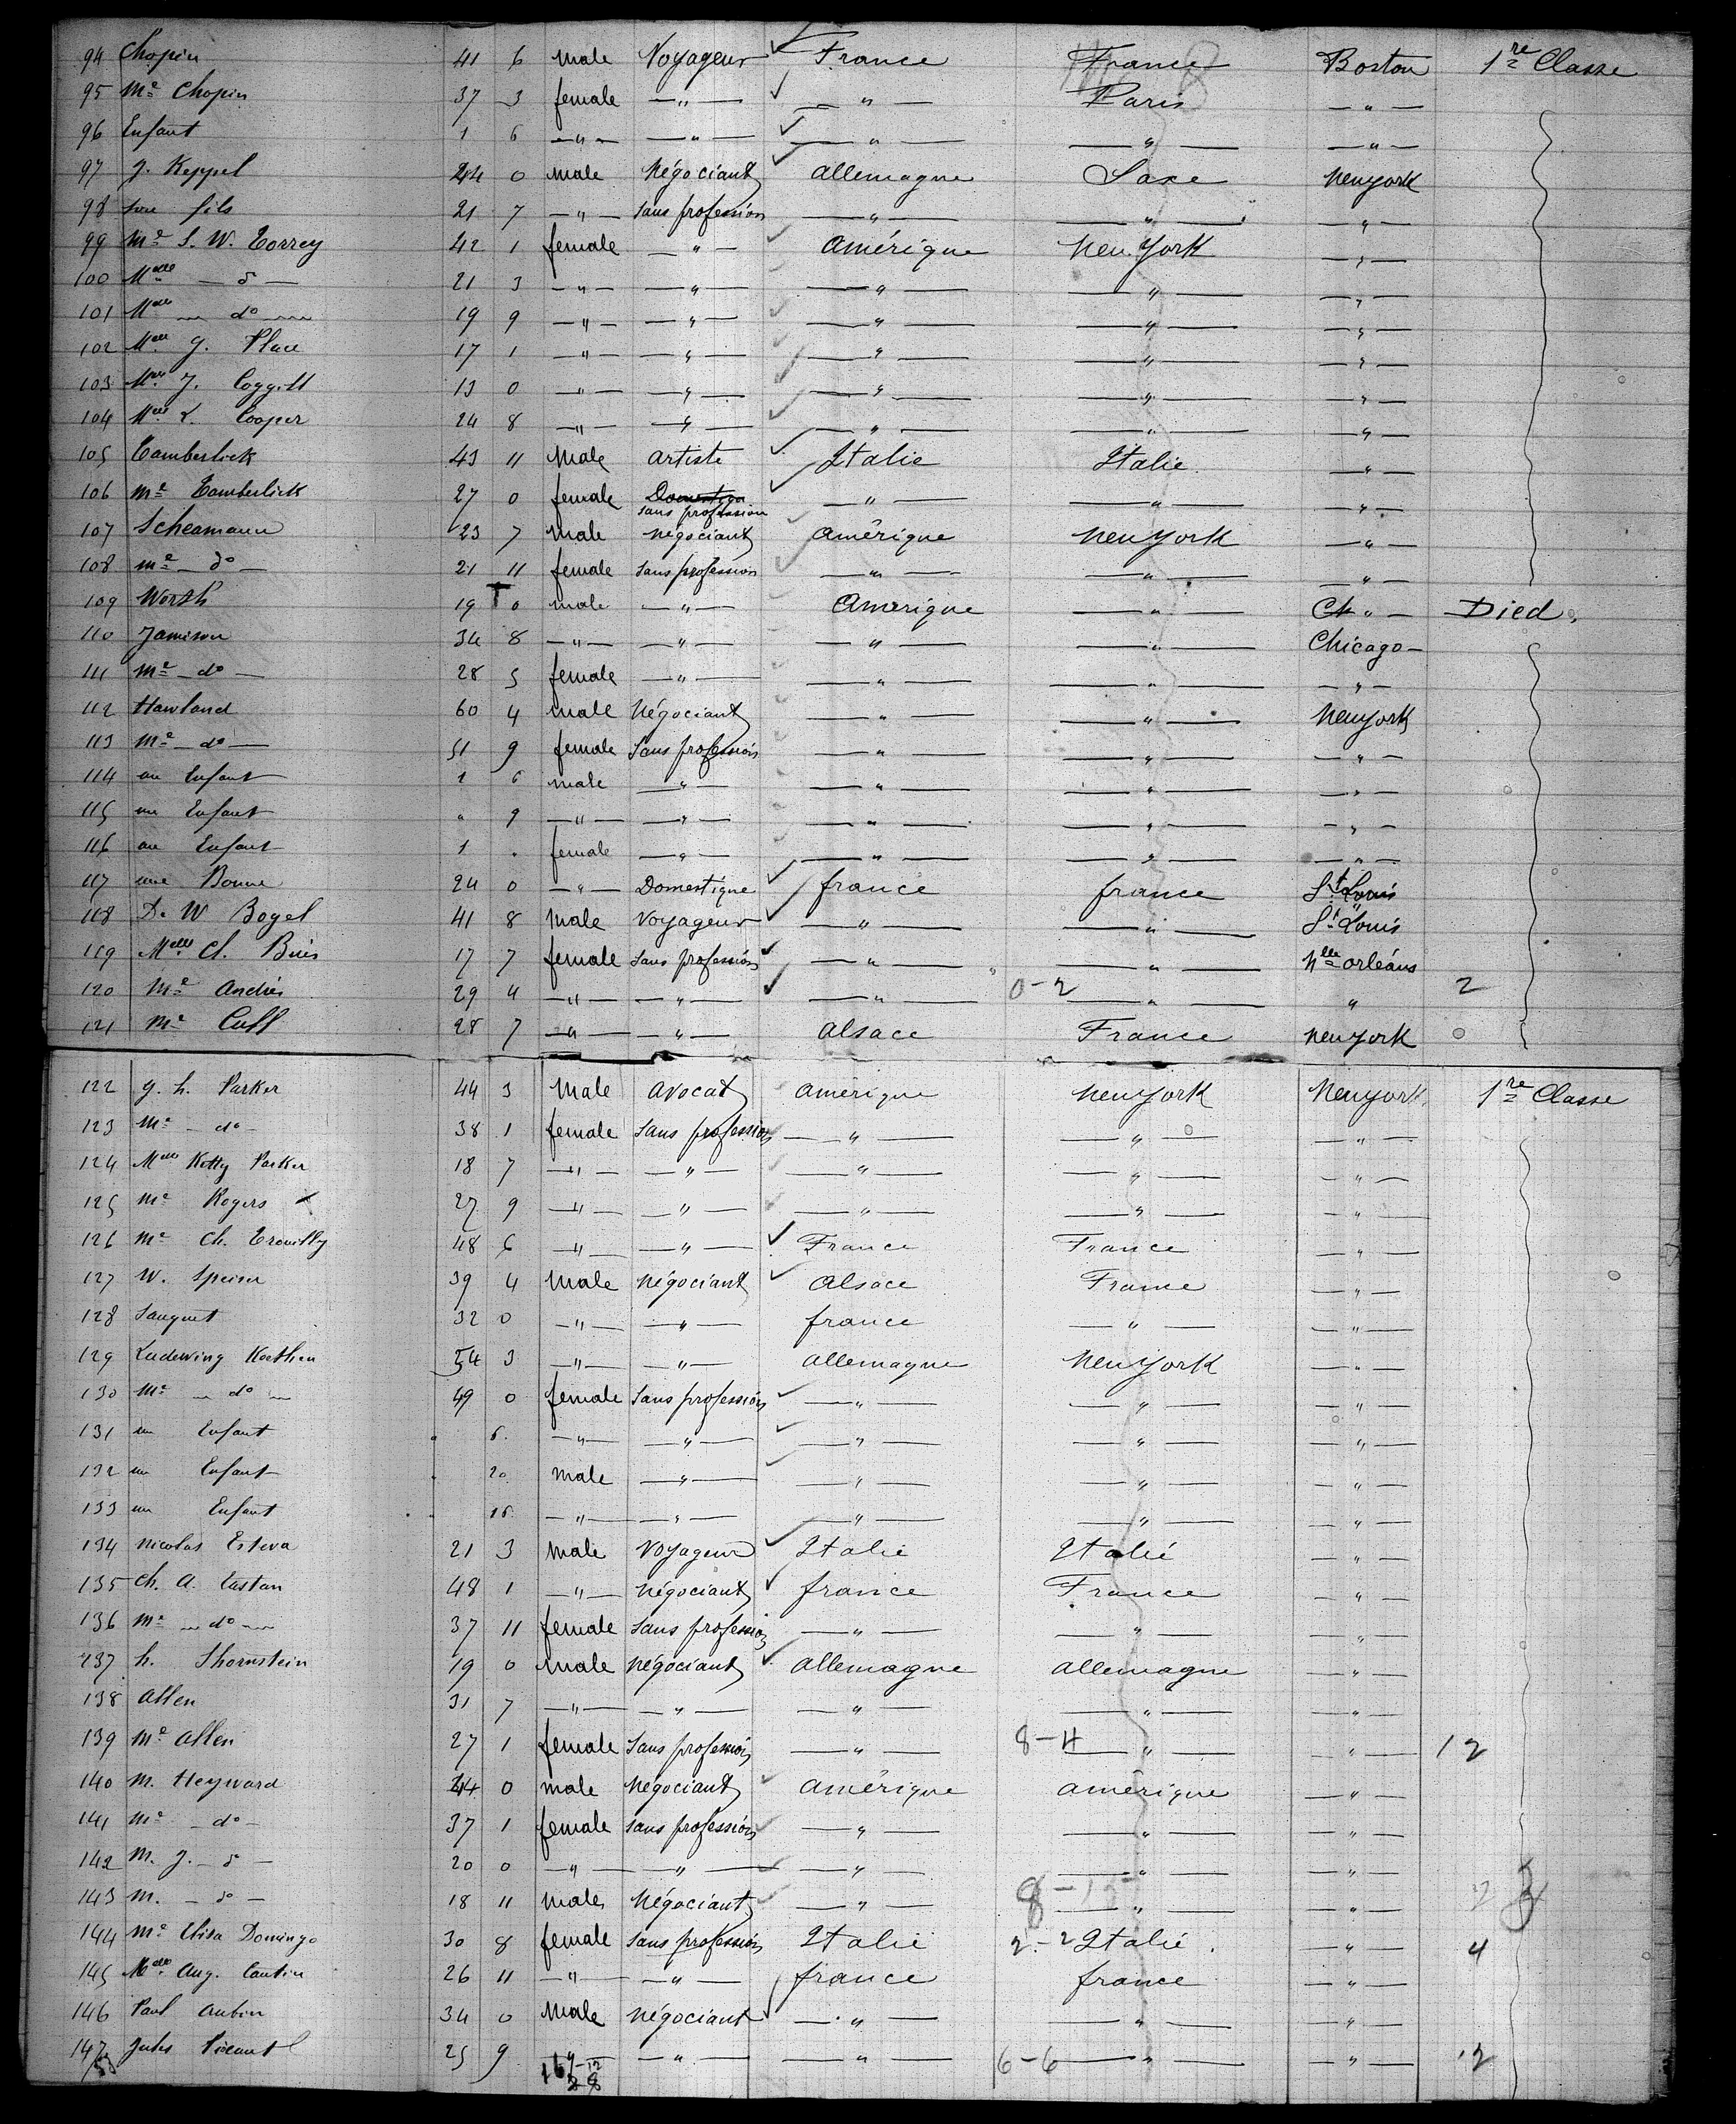 94 Chopin 41 6 Male Voyageur France France Boston 1re Classe
95 Me Chopin 37 3 female — " — — " — Paris — " —
96 Enfant 1 6 — " — — " — — " — — " — — " —
97 J. Keppel 44 0 male Négociant allemagne Saxe Newyork
98 son fils 21 7 — " — sans profession — " — — " — — " —
99 Me S. W. Torrey 42 1 female — " — Amérique New York — " —
100 Melle — do — 21 3 — " — — " — — " — — " — — " —
101 Melle — do — 19 9 — " — — " — — " — — " — — " —
102 Melle G. Place 17 1 — " — — " — — " — — " — — " —
103 Melle J. Coggill 13 0 — " — — " — — " — — " — — " —
104 Melle L. Cooper 24 8 — " — — " — — " — — " — — " —
105 Tamberlick 43 11 Male artiste Italie Italie — " —
106 Me Tamberlick 27 0 female sans profession — " — — " — — " —
107 Scheamann 23 7 Male négociant Amérique New York — " —
108 me — do — 21 11 female sans profession — " — — " — — " —
109 Worth 19 0 male — " — Amerique — " — Ch " — Died
110 Jamison 34 8 — " — — " — — " — — " — Chicago
111 me — do — 28 5 female — " — — " — — " — — " —
112 Hawland 60 4 male Négociant — " — — " — Newyork
113 Me — do — 51 9 female Sans profession — " — — " — — " —
114 un Enfant 1 6 male — " — — " — — " — — " —
115 un Enfant " 9 — " — — " — — " — — " — — " —
116 un Enfant 1 . female — " — — " — — " — — " —
117 une Bonne 24 0 — " — Domestique france france St Louis
118 D. W Bogel 41 8 Male Voyageur — " — — " — St Louis
119 Melle Cl. Buis 17 7 female Sans profession — " — — " — Nlle orléans
120 Me Andrés 29 4 — " — — " — — " — 0-2 — " — " 2
121 Me Cull 28 7 — " — — " — alsace France newyork
122 G. h. Parker 44 3 Male avocat amérique newyork Newyork 1re Classe
123 Me — do — 38 1 female Sans profession — " — — " — — " —
124 Melle Ketty Parker 18 7 — " — — " — — " — — " — — " —
125 Me Rogers 27 9 — " — — " — — " — — " — — " —
126 Me Ch. Trouilly 48 6 — " — — " — France France — " —
127 W. Speiser 39 4 Male négociant alsace France — " —
128 Sauguet 32 0 — " — — " — france — " — — " —
129 Ludewing Koethen 54 3 — " — — " — allemagne New York — " —
130 Me — do — 49 0 female Sans profession — " — — " — — " —
131 un Enfant 6 — " — — " — — " — — " — — " —
132 un Enfant 20 male — " — — " — — " — — " —
133 un Enfant 16 — " — — " — — " — — " — — " —
134 Nicolas Esteva 21 3 Male Voyageur Italie Italie — " —
135 Ch. A. Tastan 48 1 — " — Négociant france France — " —
136 Me — do — 37 11 female Sans profession — " — — " — — " —
137 h. Shornstein 19 0 Male Négociant allemagne allemagne — " —
138 Allen 31 7 — " — — " — — " — — " — — " —
139 Me Allen 27 1 female Sans profession — " — 8-4 — " — — " — 12
140 M. Heyward 44 0 male Négociant amérique amérique — " —
141 Me — do — 37 1 female sans profession — " — — " — — " —
142 M. J. — do — 20 0 — " — — " — — " — — " — — " —
143 M. — do — 18 11 Male Négociant — " — — " — — " —
144 Me Elisa Domingo 30 8 female Sans profession Italie 2-2 Italie — " — 4
145 Melle Aug. Cantin 26 11 — " — — " — france france — " —
146 Paul Aubin 34 0 Male négociant — " — — " — — " —
147 Jules 25 9 — " — — " — — " — 6-6 — " — — " — 12